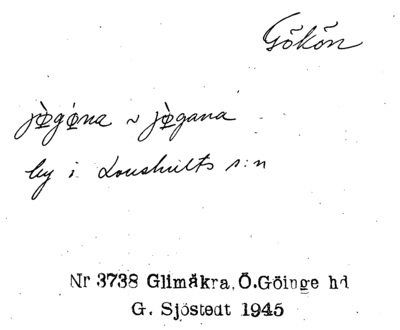 Gökön
jòg̀øna ~ jògana
by i Loushults s:n
Nr 3738 Glimåkra, Ö.Göinge hd
G. Sjöstedt 1945